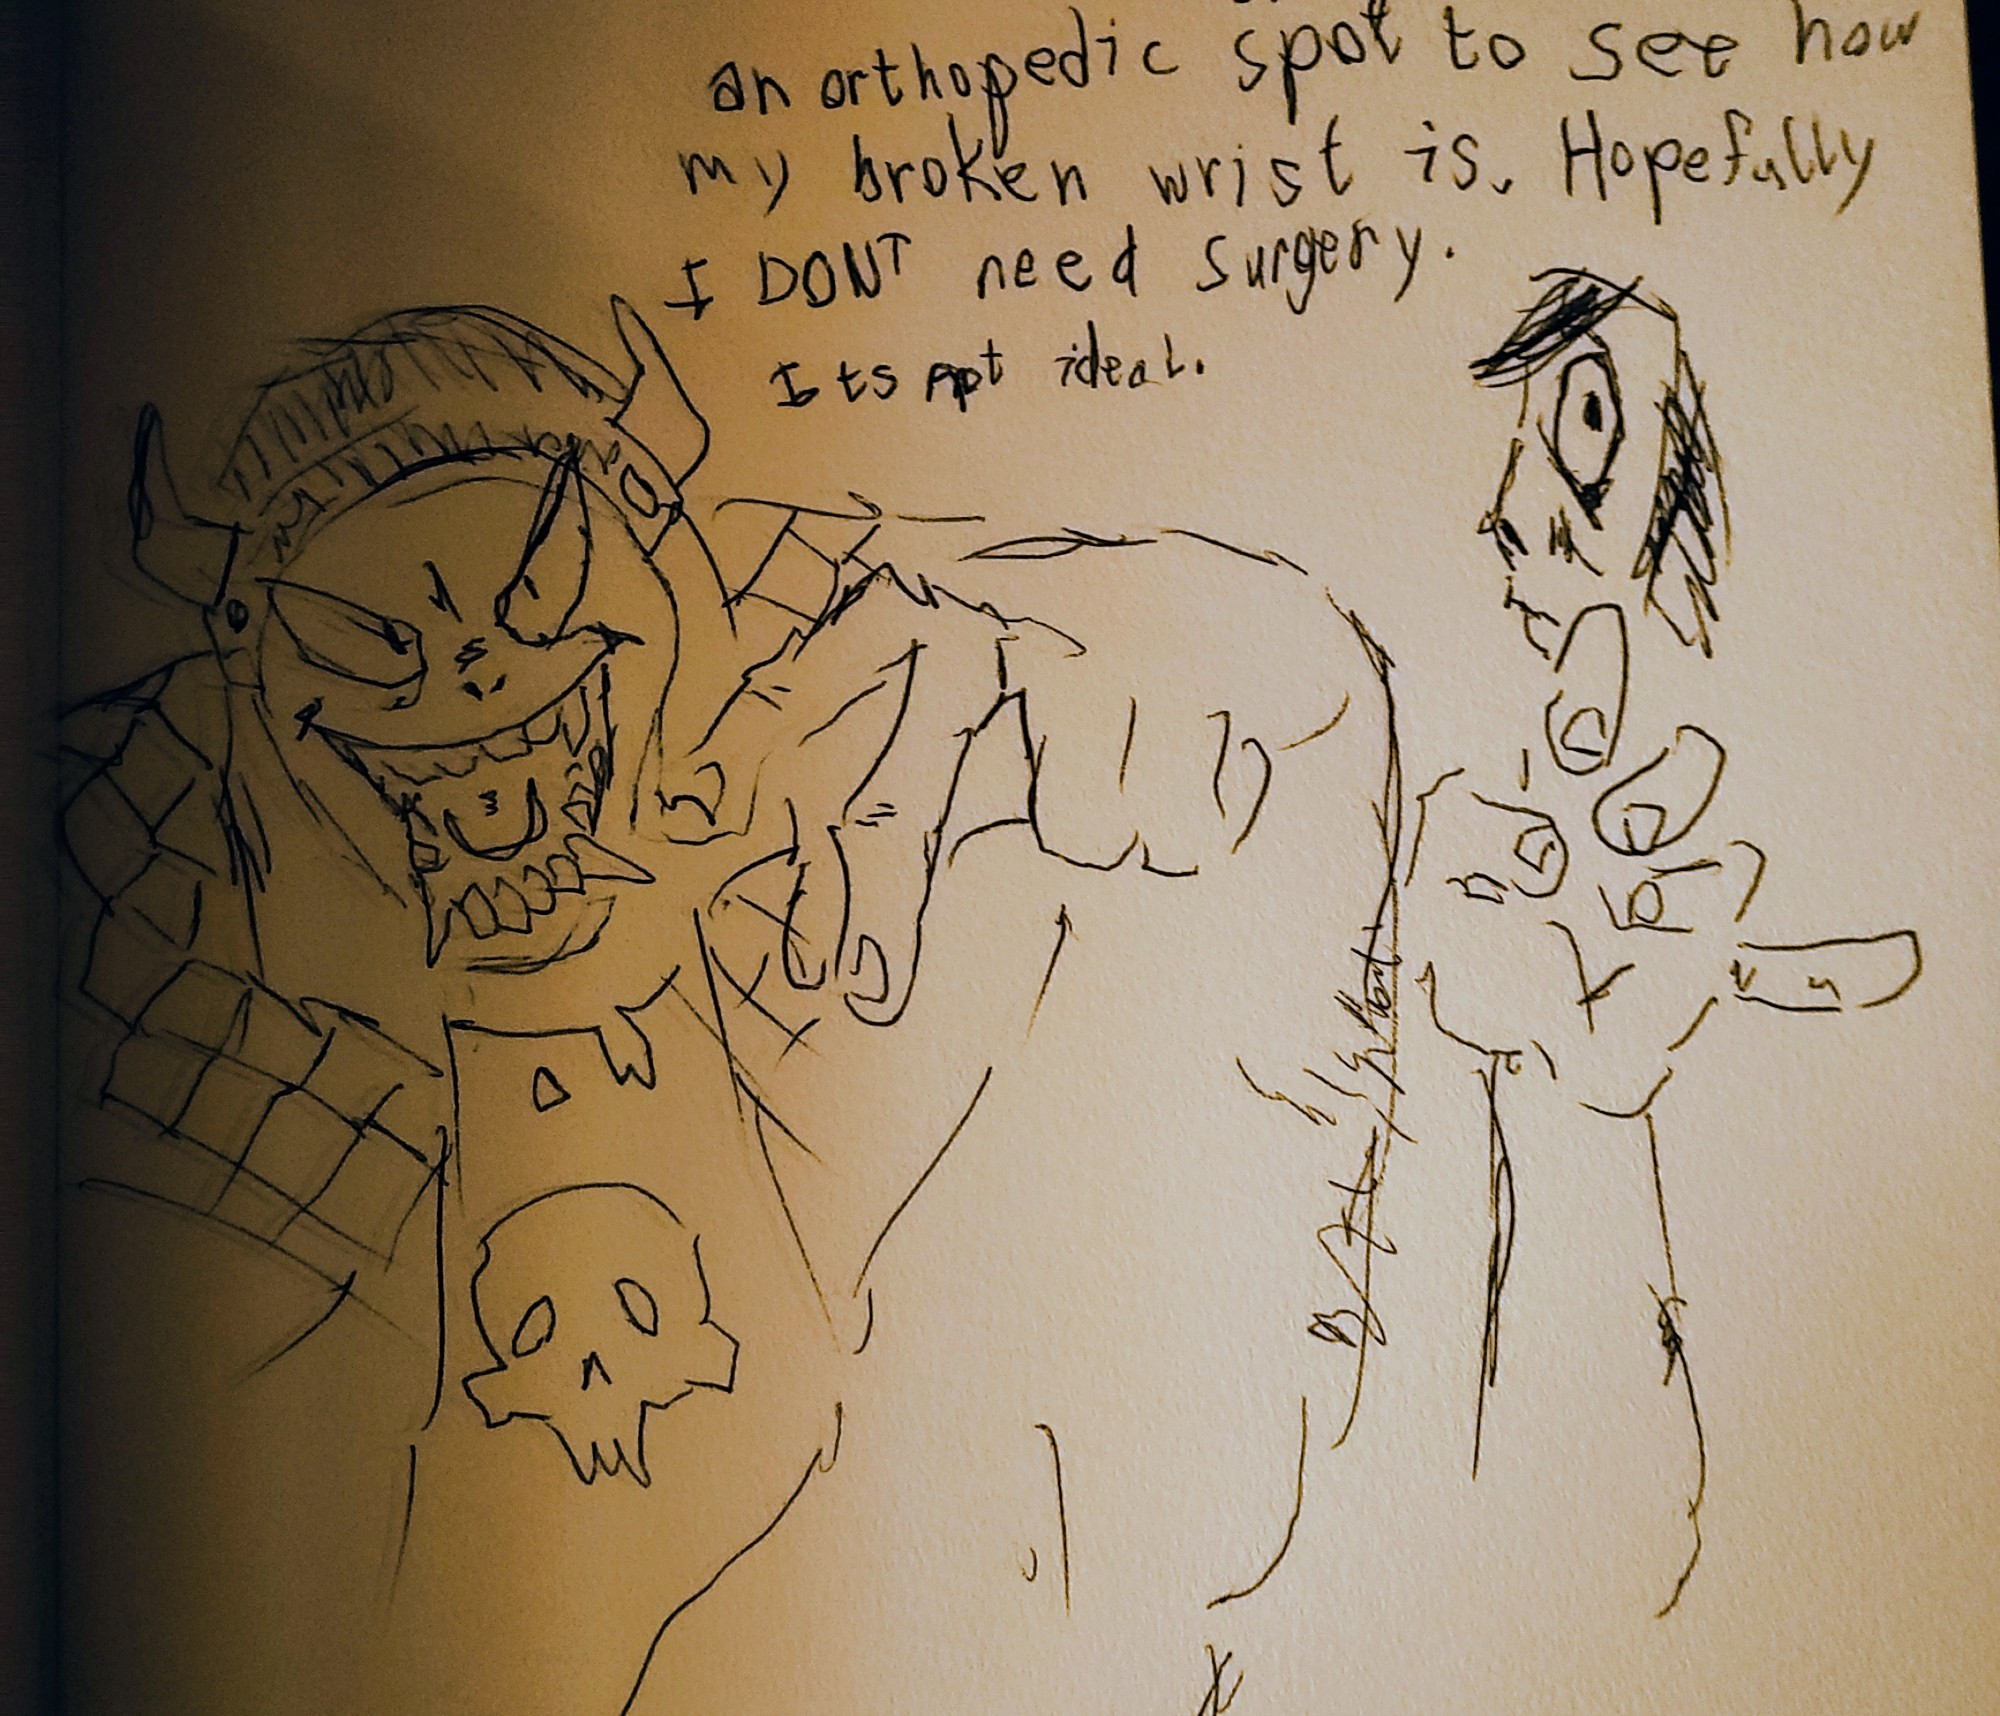 an orthopedic spot to see how
my broken wrist is. Hopefully
I DONT need surgery.
Its not ideal.